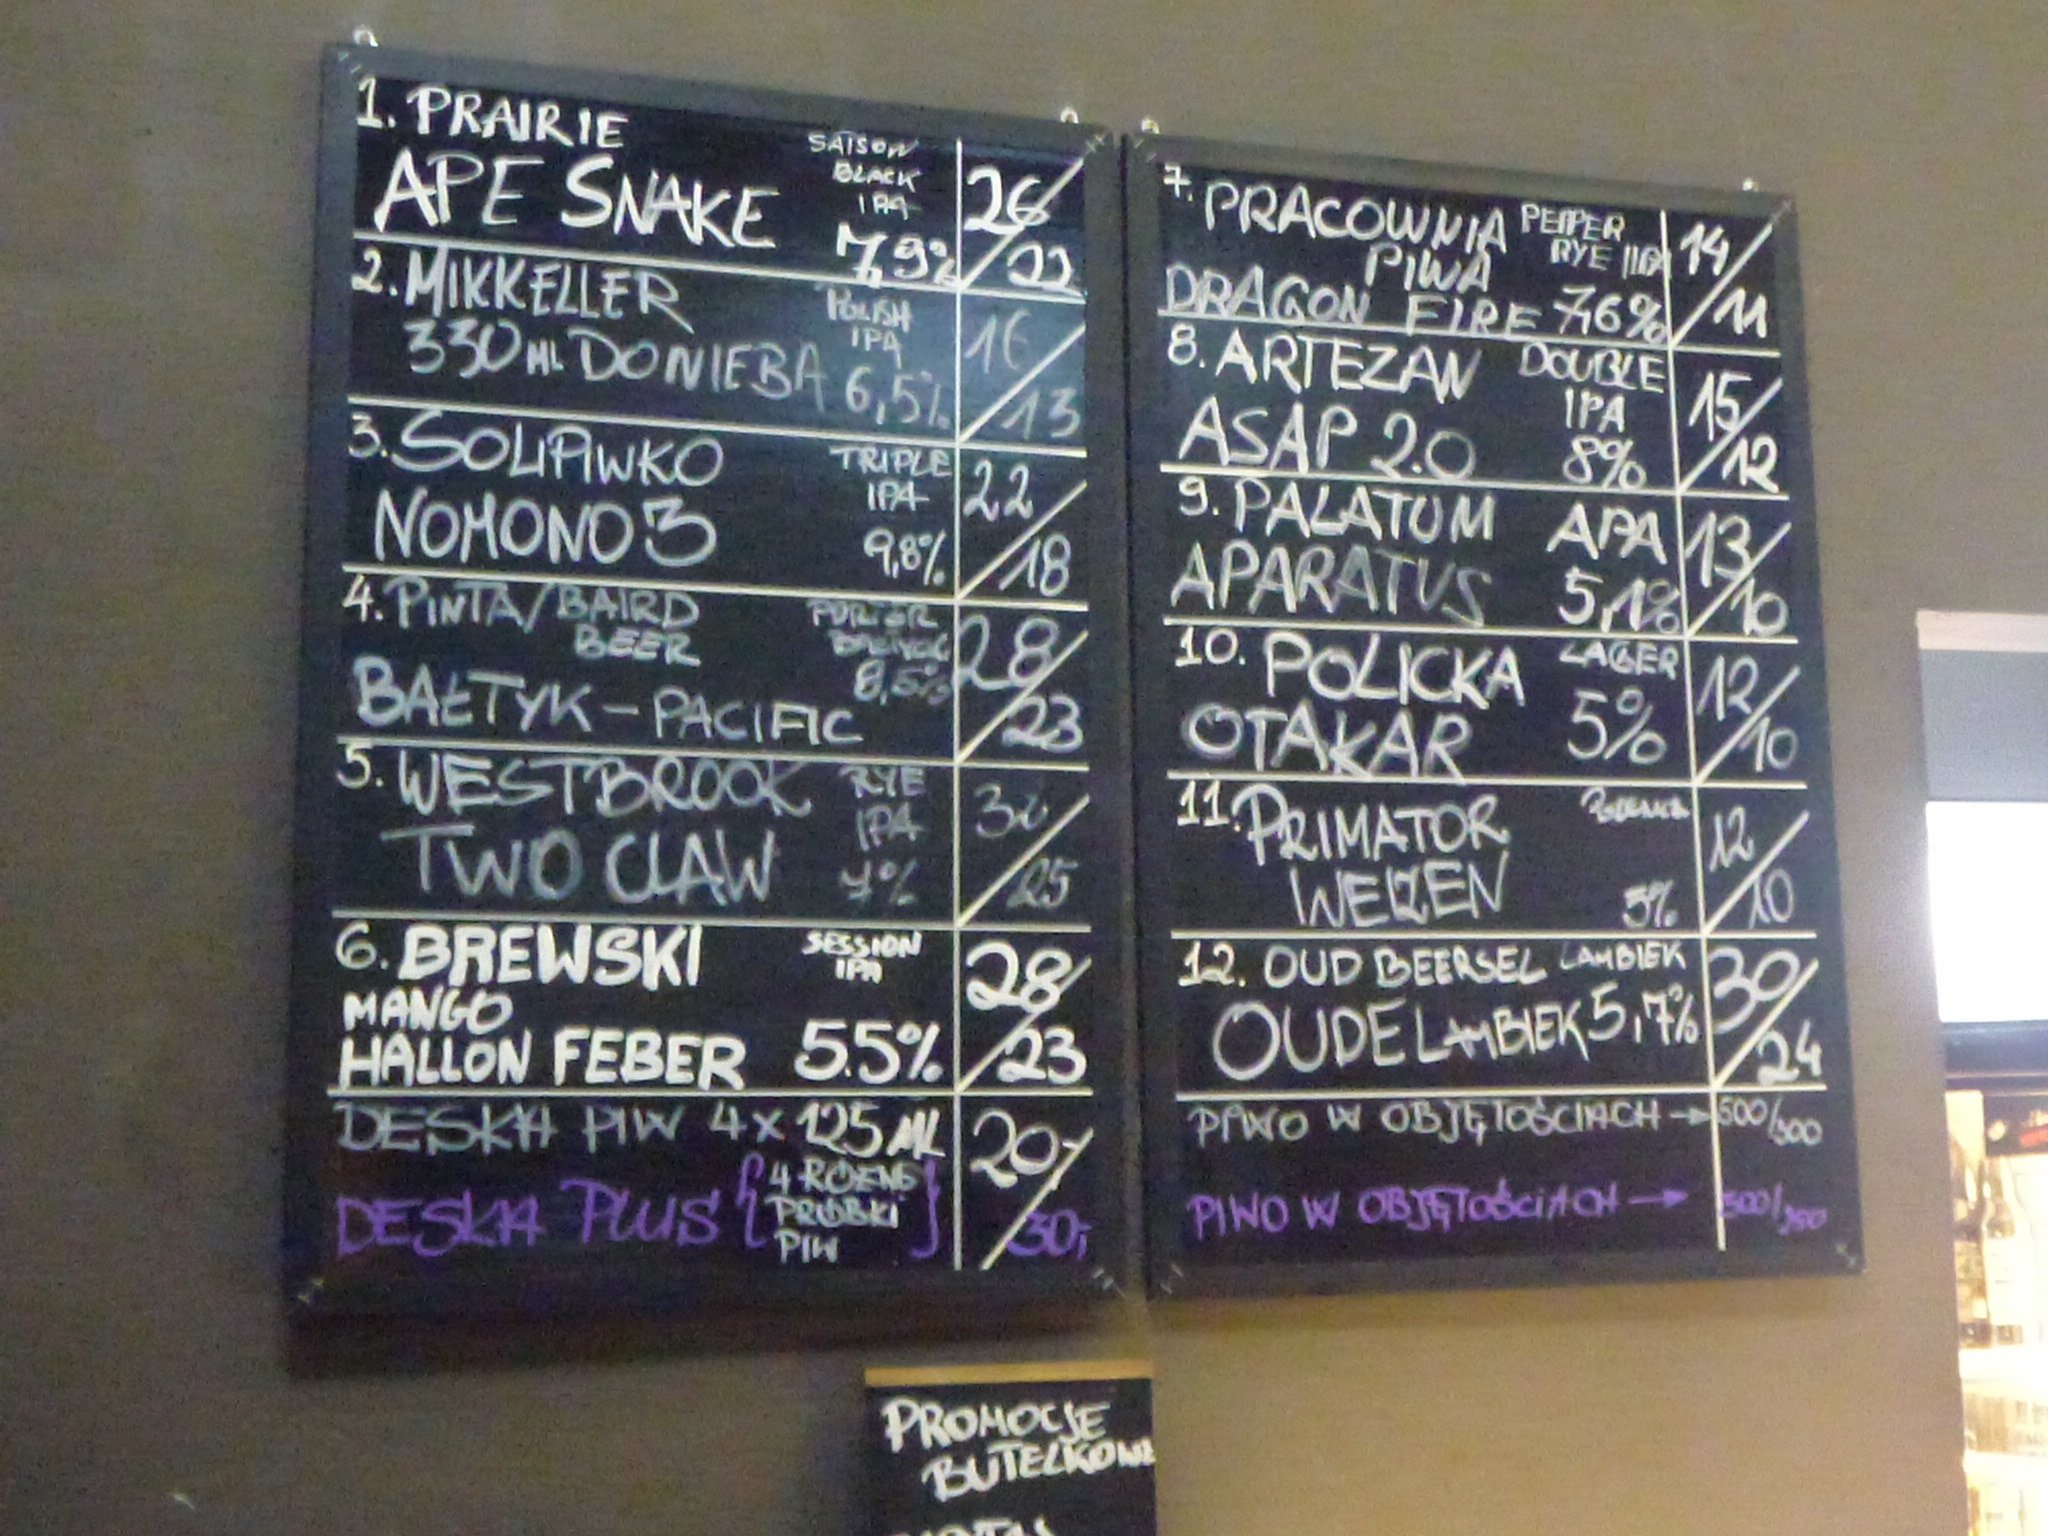 1. PRAIRIE
APE SNAKE
SAISON
BLACK
IPA
7,9%
26/22
2. MIKKELLER
330ML DONIEBA
POLISH
IPA
6,5%
16/13
3. SOLIPIWKO
NOMONO 3
TRIPLE
IPA
9,8%
22/18
4. PINTA/BAIRD
BEER
BAŁTYK-PACIFIC
PORTER
8,5%
28/23
5. WESTBROOK
TWO CLAW
RYE
IPA
7%
25
6. BREWSKI
MANGO
HALLON FEBER
SESSION
IPA
5.5%
28/23
DESKA PIW 4x125ML
20,-
DESKA PLUS
4 RÓŻNE
PRÓBKI
PIW
30,-
7. PRACOWNIA
PIWA
DRAGON FIRE
PEPPER
RYE IIPA
7,6%
14/11
8. ARTEZAN
ASAP 2.0
DOUBLE
IPA
8%
15/12
9. PALATUM
APARATUS
APA
5,1%
13/10
10. POLICKA
OTAKAR
LAGER
5%
12/10
11. PRIMATOR
WEIZEN
5%
12/10
12. OUD BEERSEL
OUDE LAMBIEK
LAMBIEK
5,7%
30/24
PIWO W OBJĘTOŚCIACH → 500/300
PIWO W OBJĘTOŚCIACH →
PROMOCJE
BUTELKOWE